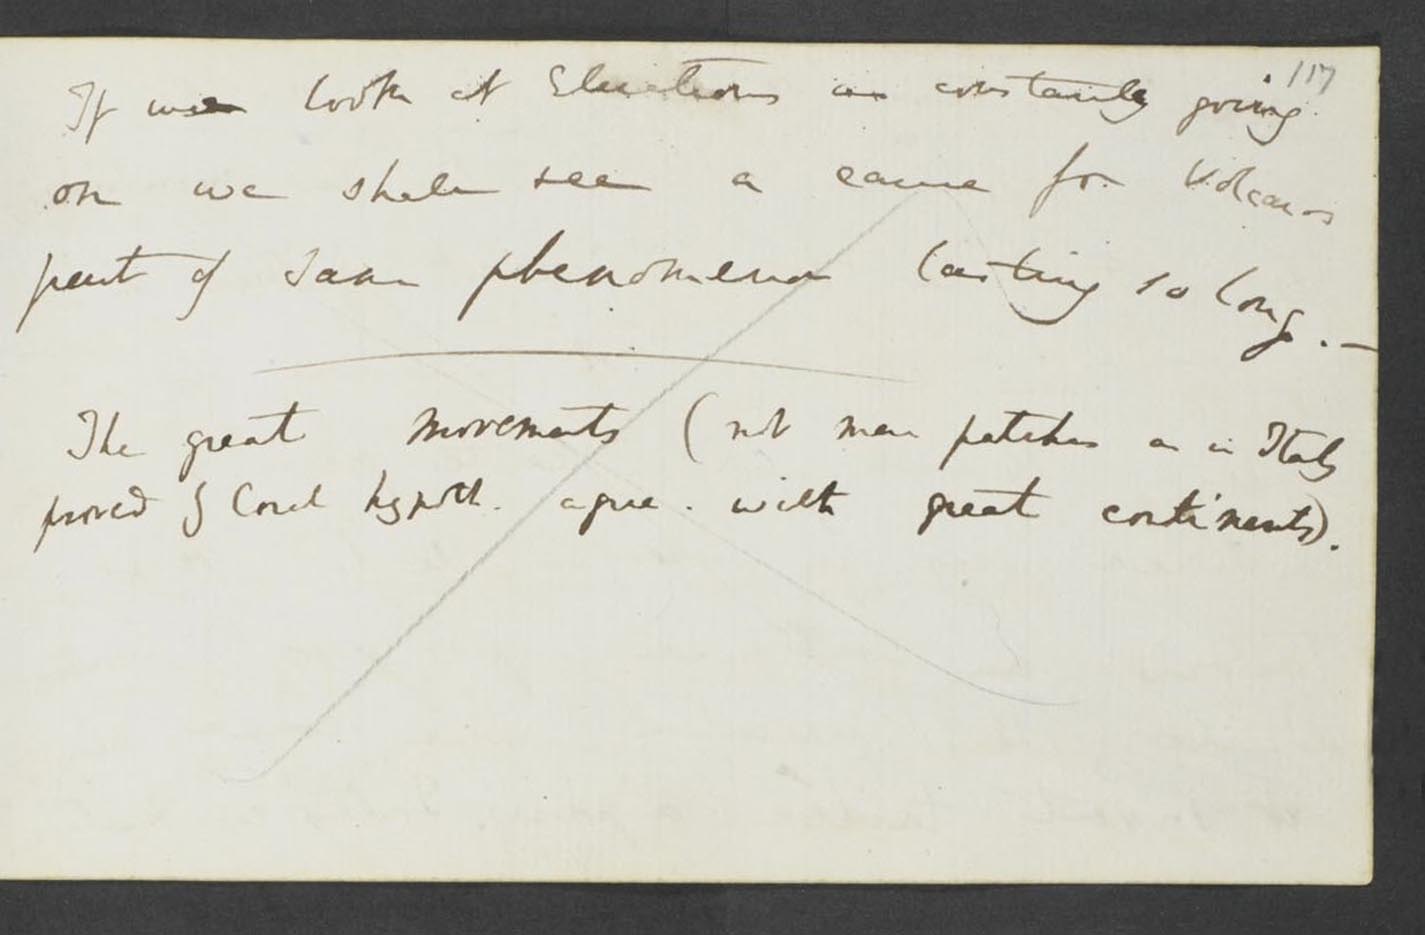 117
If we look at Elevations as constantly going
on we shall see a cause for Volcanos
part of same phenomenon lasting so long. —
The great movements (not mere patches as in Italy
proved by Coral hypoth. agree. with great continents).